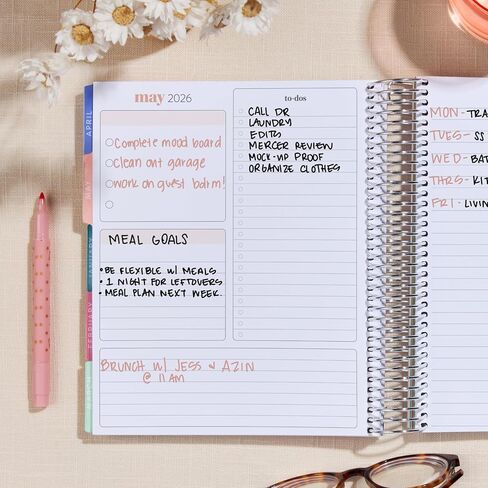 may 2026
Complete mood board
Clean out garage
Work on guest bathm!
MEAL GOALS
BE FLEXIBLE W/ MEALS
1 NIGHT FOR LEFTOVERS
MEAL PLAN NEXT WEEK
BRUNCH W/ JESS & AZIN
@ 11 AM
to-dos
CALL DR
LAUNDRY
EDITS
MERCER REVIEW
MOCK-UP PROOF
ORGANIZE CLOTHES
MON - TRA
TUES - SS
WED - BAT
THRS - KIT
FRI - LIVIN
APRIL
MAY
JANUARY
FEBRUARY
MARCH